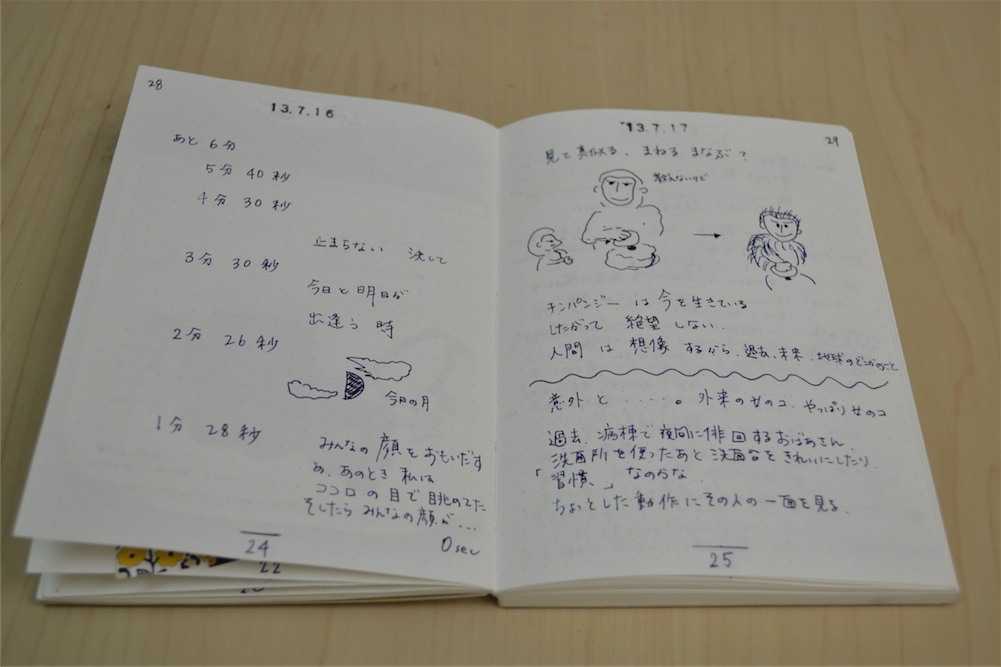 28
13.7.16
あと 6分
5分 40秒
4分 30秒
止まらない 決して
3分 30秒
今日と明日が
出逢う 時
2分 26秒
今日の月
1分 28秒
みんなの顔をおもいだす
め、あのとき 私は
ココロの目で眺めてた
そしたら みんなの顔が...
0 sec
24
22
13.7.17
29
見て真似る、まねる まなぶ?
教えないけど
→
チンパンジー は 今を生きている
したがって 絶望 しない.
人間 は 想像 するから、過去、未来、地球のどこかのこと
意外 と ・・・・・。外来の女のコ、やっぱり女のコ
過去、病棟で夜間に俳回するおばあさん
洗面所を使ったあと洗面台をきれいにしたり
「習慣」 なのかな
ちょっとした動作にその人の一面を見る
25